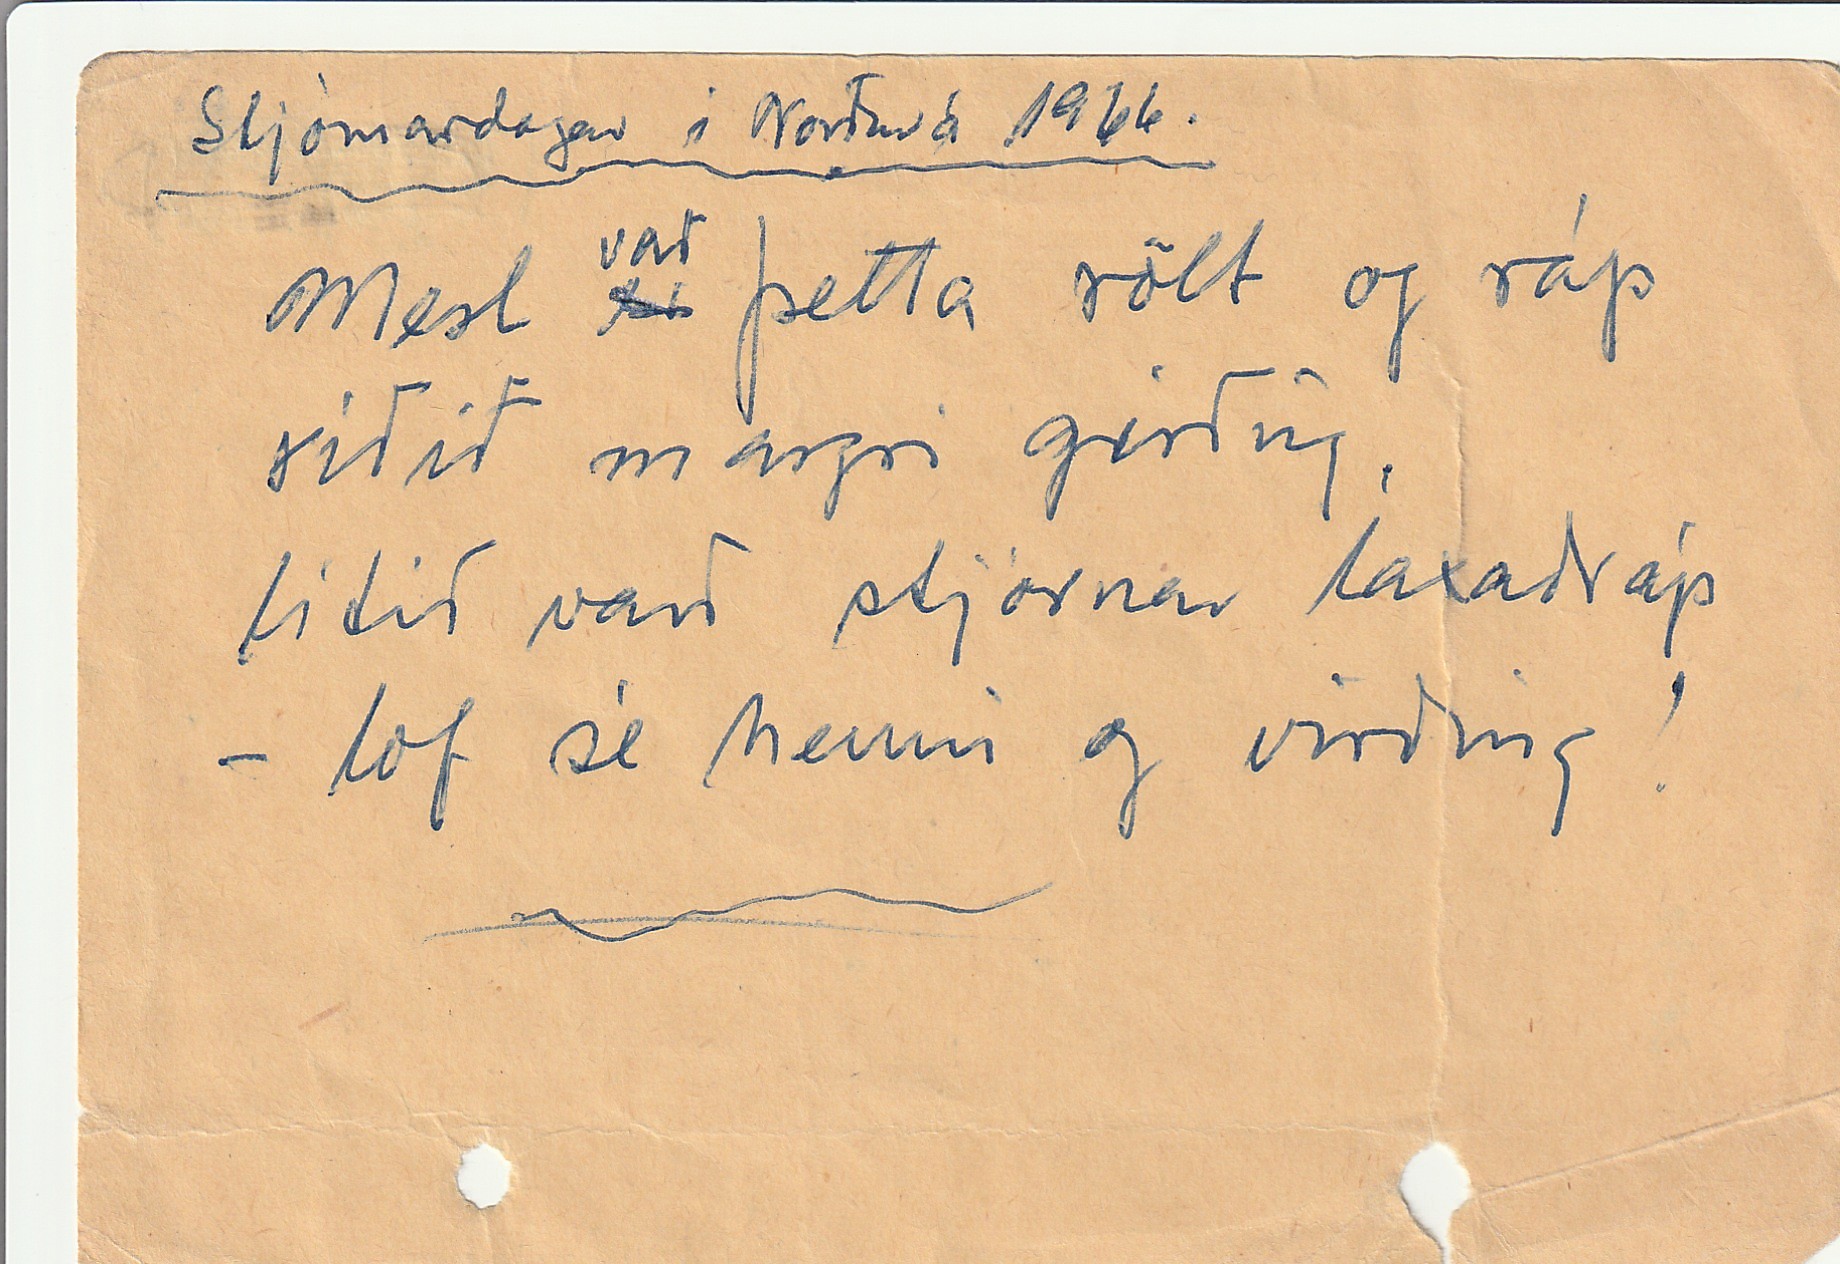 Stjórnardagar í Norðurá 1966.
Mest var þetta rölt og ráp
við margri girðing,
lítið varð stjórnar laxadráp
- lof sé henni og virðing!